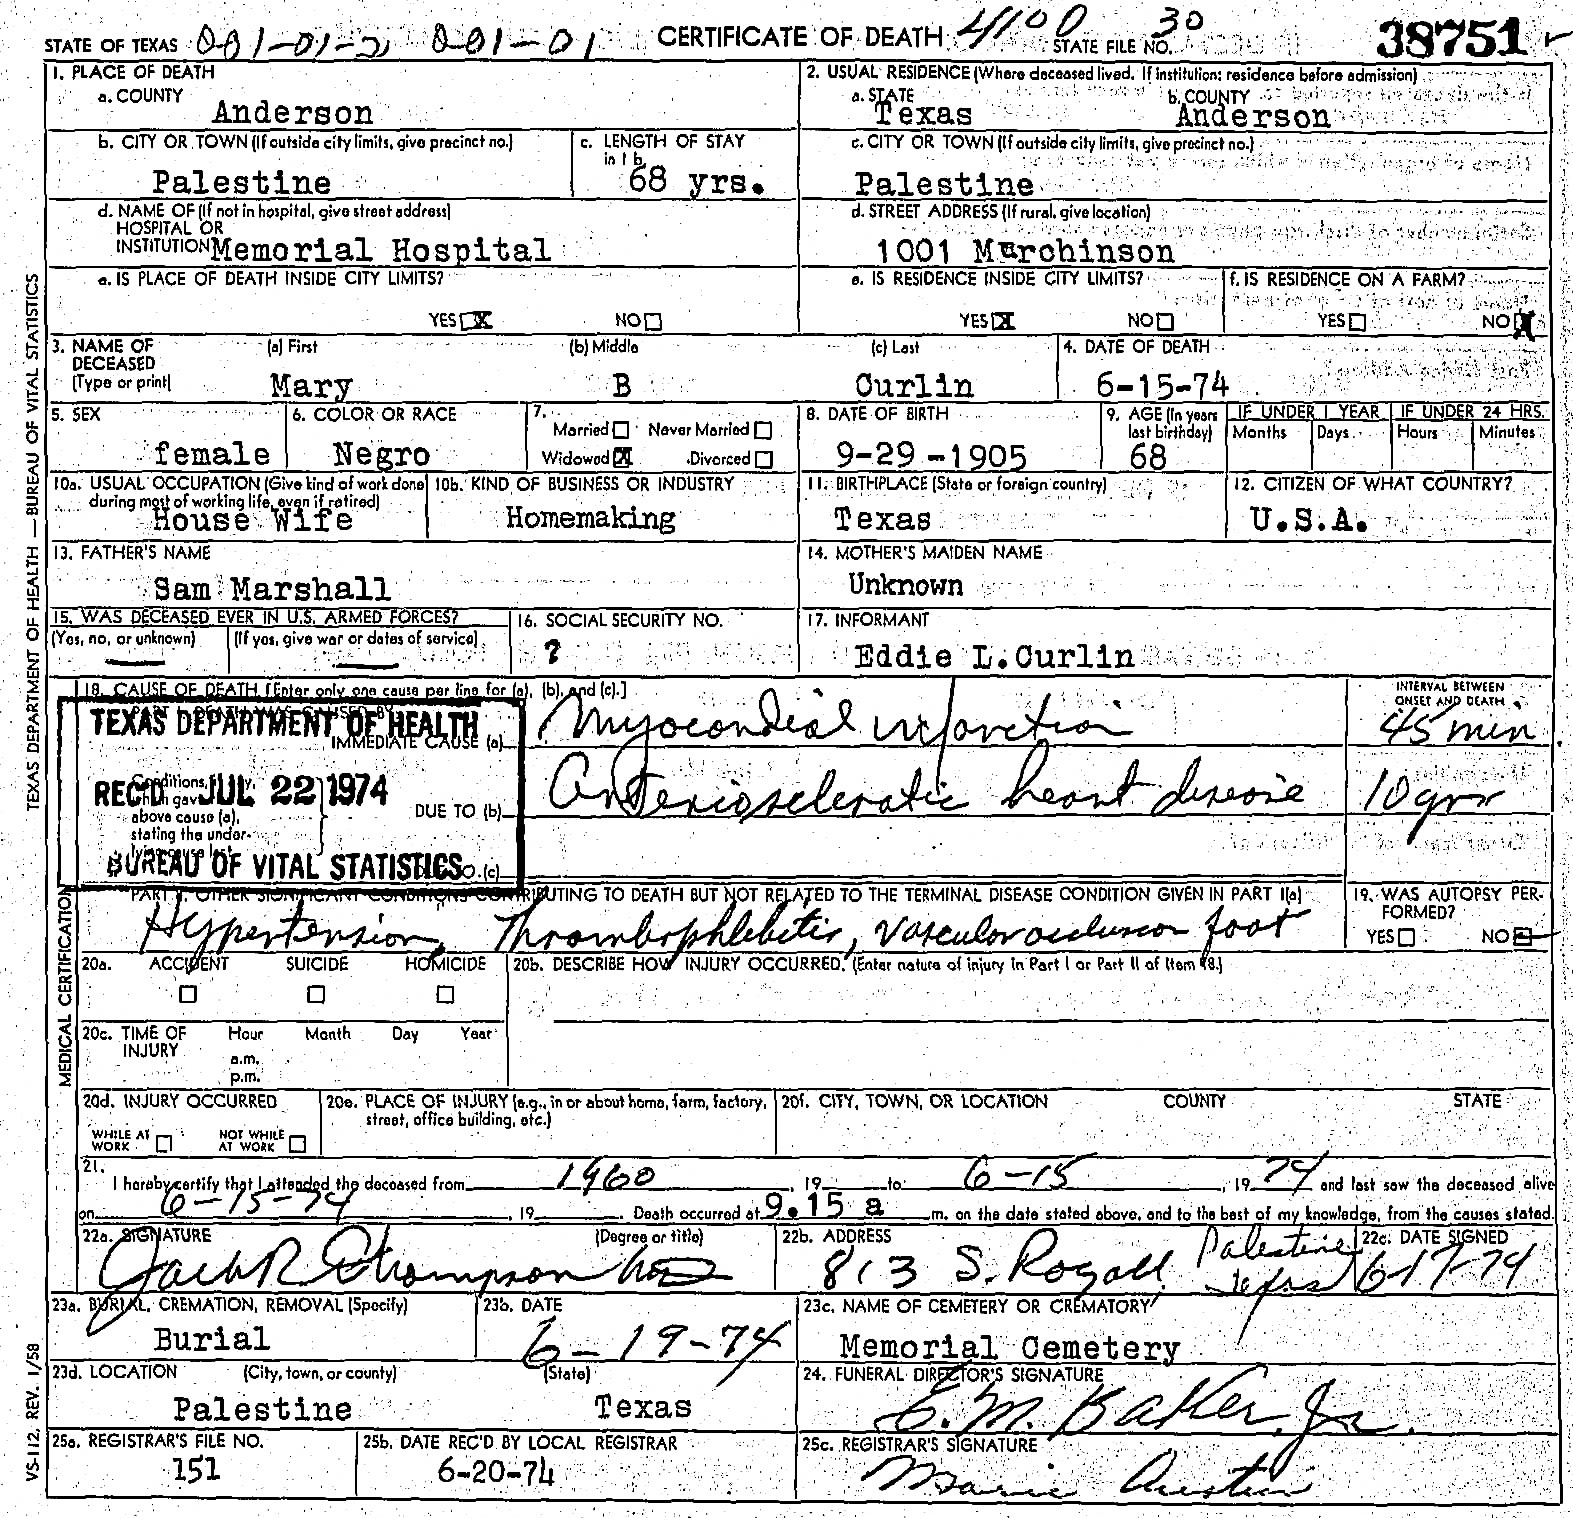 STATE OF TEXAS 001-01-2 001-01 CERTIFICATE OF DEATH 4100 STATE FILE NO. 30 38751
1. PLACE OF DEATH
a. COUNTY
Anderson
2. USUAL RESIDENCE (Where deceased lived. If institution: residence before admission)
a. STATE b. COUNTY
Texas Anderson
b. CITY OR TOWN (If outside city limits, give precinct no.)
Palestine
c. LENGTH OF STAY
in 1 b
68 yrs.
c. CITY OR TOWN (If outside city limits, give precinct no.)
Palestine
d. NAME OF (If not in hospital, give street address)
HOSPITAL OR
INSTITUTION Memorial Hospital
d. STREET ADDRESS (If rural, give location)
1001 Murchinson
e. IS PLACE OF DEATH INSIDE CITY LIMITS?
YES X NO
e. IS RESIDENCE INSIDE CITY LIMITS?
YES X NO
f. IS RESIDENCE ON A FARM?
YES NO X
3. NAME OF DECEASED
(Type or print)
(a) First (b) Middle (c) Last
Mary B Curlin
4. DATE OF DEATH
6-15-74
5. SEX
female
6. COLOR OR RACE
Negro
7.
Married Never Married
Widowed X Divorced
8. DATE OF BIRTH
9-29-1905
9. AGE (In years
last birthday)
68
IF UNDER 1 YEAR IF UNDER 24 HRS.
Months Days Hours Minutes
10a. USUAL OCCUPATION (Give kind of work done
during most of working life, even if retired)
House Wife
10b. KIND OF BUSINESS OR INDUSTRY
Homemaking
11. BIRTHPLACE (State or foreign country)
Texas
12. CITIZEN OF WHAT COUNTRY?
U.S.A.
13. FATHER'S NAME
Sam Marshall
14. MOTHER'S MAIDEN NAME
Unknown
15. WAS DECEASED EVER IN U.S. ARMED FORCES?
(Yes, no, or unknown) (If yes, give war or dates of service)
16. SOCIAL SECURITY NO.
?
17. INFORMANT
Eddie L. Curlin
18. CAUSE OF DEATH [Enter only one cause per line for (a), (b), and (c).]
PART I. DEATH WAS CAUSED BY
IMMEDIATE CAUSE (a) Myocardial infarction
DUE TO (b) Arterioscleratic heart disease
Conditions, 
above cause (a),
stating the under-
lying cause last.
(c)
INTERVAL BETWEEN
ONSET AND DEATH
45 min
10 yrs
TEXAS DEPARTMENT OF HEALTH
REC'D JUL 22 1974
BUREAU OF VITAL STATISTICS
PART II. OTHER SIGNIFICANT CONDITIONS CONTRIBUTING TO DEATH BUT NOT RELATED TO THE TERMINAL DISEASE CONDITION GIVEN IN PART I(a)
Hypertension, Thrombophlebitis, vascular occlusion foot
19. WAS AUTOPSY PER-
FORMED?
YES NO
20a. ACCIDENT SUICIDE HOMICIDE
20b. DESCRIBE HOW INJURY OCCURRED. (Enter nature of injury in Part I or Part II of Item 18.)
20c. TIME OF
INJURY
Hour Month Day Year
a.m.
p.m.
20d. INJURY OCCURRED
WHILE AT
WORK
NOT WHILE
AT WORK
20e. PLACE OF INJURY (e.g., in or about home, farm, factory,
street, office building, etc.)
20f. CITY, TOWN, OR LOCATION COUNTY STATE
21.
I hereby certify that I attended the deceased from 1960, 19 to 6-15, 19 74 and last saw the deceased alive
on 6-15-74, 19 . Death occurred at 9.15 a m. on the date stated above, and to the best of my knowledge, from the causes stated.
22a. SIGNATURE (Degree or title)
Jack R Thompson MD
22b. ADDRESS
813 S. Royall, Palestine Texas
22c. DATE SIGNED
6-17-74
23a. BURIAL, CREMATION, REMOVAL (Specify)
Burial
23b. DATE
6-19-74
23c. NAME OF CEMETERY OR CREMATORY
Memorial Cemetery
23d. LOCATION (City, town, or county) (State)
Palestine Texas
24. FUNERAL DIRECTOR'S SIGNATURE
E. M. Baker, Jr.
25a. REGISTRAR'S FILE NO.
151
25b. DATE REC'D BY LOCAL REGISTRAR
6-20-74
25c. REGISTRAR'S SIGNATURE
Marie Austin
TEXAS DEPARTMENT OF HEALTH — BUREAU OF VITAL STATISTICS
MEDICAL CERTIFICATION
VS-112, REV. 1/58